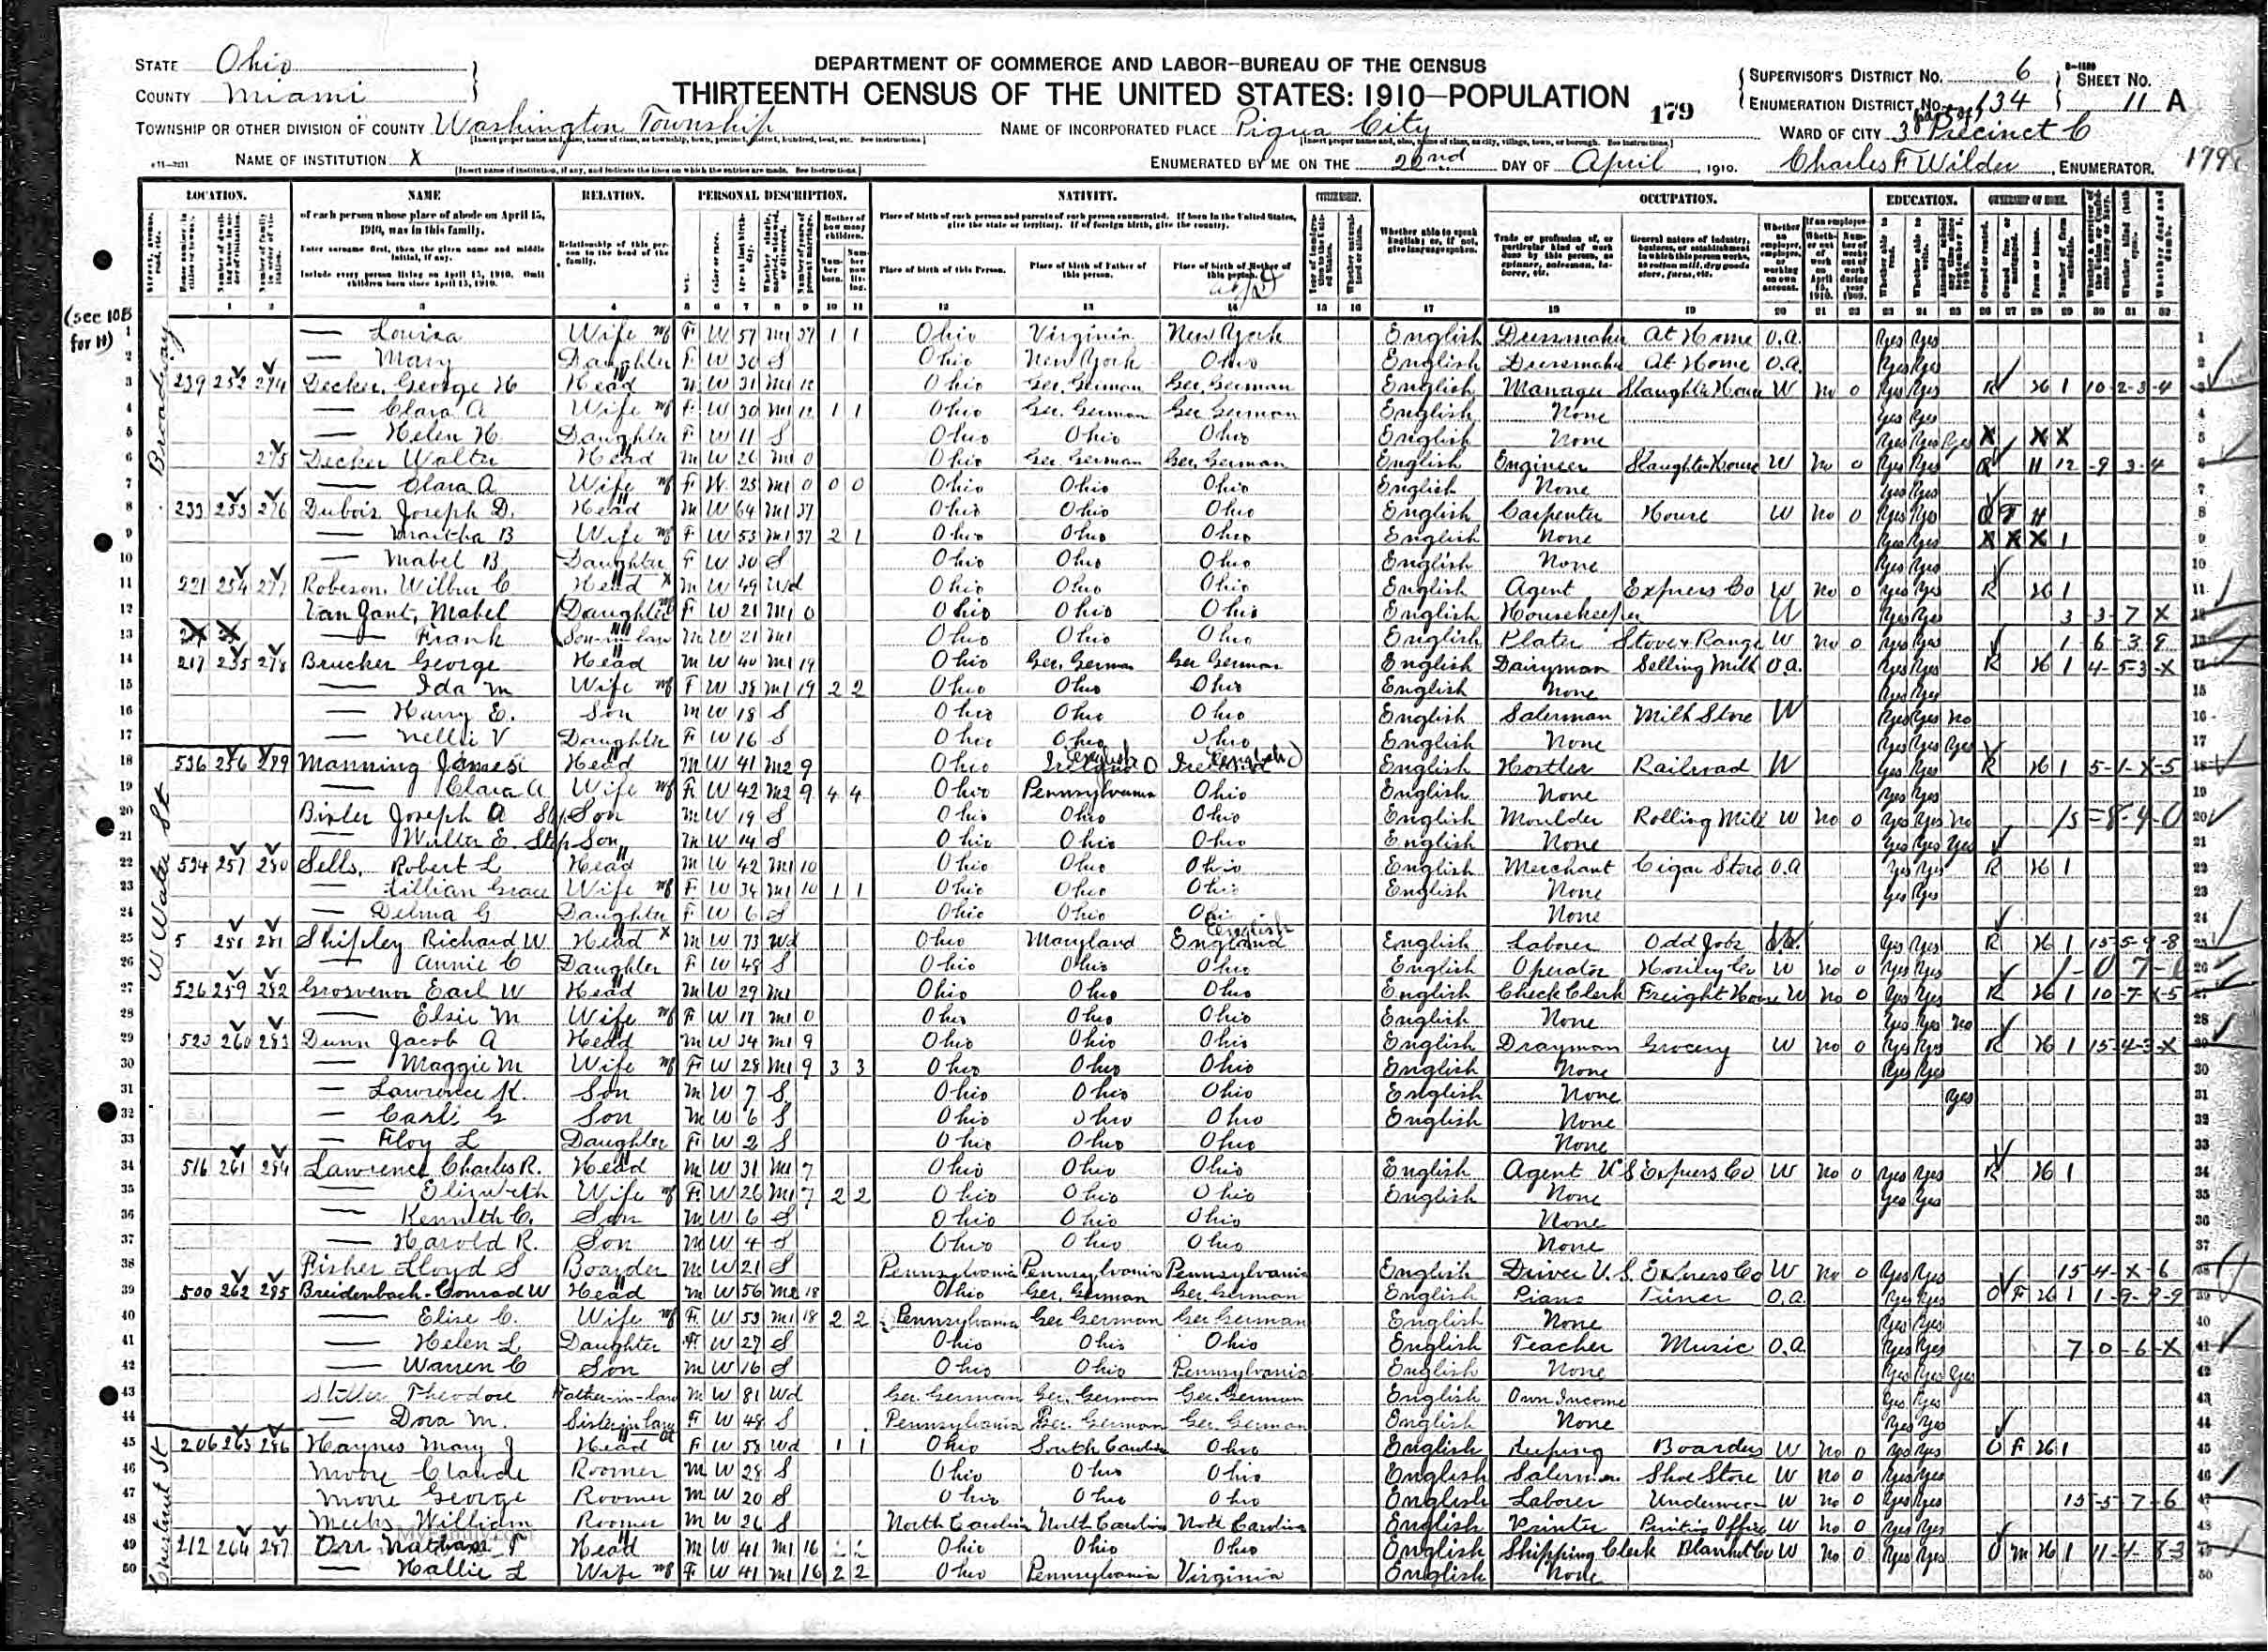 STATE Ohio
COUNTY Miami
DEPARTMENT OF COMMERCE AND LABOR-BUREAU OF THE CENSUS
THIRTEENTH CENSUS OF THE UNITED STATES: 1910-POPULATION
179
SUPERVISOR'S DISTRICT No. 6
ENUMERATION DISTRICT No. 134
SHEET No. 11 A
TOWNSHIP OR OTHER DIVISION OF COUNTY Washington Township
NAME OF INCORPORATED PLACE Piqua City
WARD OF CITY 3 Precinct C
NAME OF INSTITUTION X
ENUMERATED BY ME ON THE 22nd DAY OF April, 1910.
Charles F Wilder, ENUMERATOR.
LOCATION. NAME RELATION. PERSONAL DESCRIPTION. NATIVITY. CITIZENSHIP. OCCUPATION. EDUCATION. OWNERSHIP OF HOME.
of each person whose place of abode on April 15, 1910, was in this family.
Enter surname first, then the given name and middle initial, if any.
Include every person living on April 15, 1910. Omit children born since April 15, 1910.
Relationship of this person to the head of the family.
Place of birth of this Person. Place of birth of Father of this person. Place of birth of Mother of this person.
(see 10B for H)
Broadway
1 — Louisa Wife F W 57 M1 37 1 1 Ohio Virginia New York English Dressmaker At Home O.A. Yes Yes
2 — Mary Daughter F W 30 S Ohio New York Ohio English Dressmaker At Home O.A. Yes Yes
3 239 252 274 Decker, George H Head M W 31 M1 12 Ohio Ger. German Ger. German English Manager Slaughter House W No 0 Yes Yes R H 1 10-2-3-4
4 — Clara A Wife F W 30 M1 12 1 1 Ohio Ger. German Ger. German English None Yes Yes
5 — Helen H Daughter F W 11 S Ohio Ohio Ohio English None Yes Yes Yes X X X
6 275 Decker Walter Head M W 26 M1 0 Ohio Ger. German Ger. German English Engineer Slaughter House W No 0 Yes Yes H 12-9-3-4
7 — Clara A Wife F W 25 M1 0 0 0 Ohio Ohio Ohio English None Yes Yes
8 233 253 276 Dubois Joseph D. Head M W 64 M1 37 Ohio Ohio Ohio English Carpenter House W No 0 Yes Yes O F H
9 — Martha B Wife F W 53 M1 37 2 1 Ohio Ohio Ohio English None Yes Yes X X X 1
10 — Mabel B. Daughter F W 30 S Ohio Ohio Ohio English None Yes Yes
11 221 254 277 Robeson Wilbur C Head M W 49 Wd Ohio Ohio Ohio English Agent Express Co W No 0 Yes Yes R H 1
12 Van Zant, Mabel Daughter F W 21 M1 0 Ohio Ohio Ohio English Housekeeper W Yes Yes 3-3-7 X
13 — Frank Son-in-law M W 21 M1 Ohio Ohio Ohio English Plater Stove & Range W No 0 Yes Yes 1-6-3-9
14 217 255 278 Brucker George Head M W 40 M1 19 Ohio Ger. German Ger German English Dairyman Selling Milk O.A. Yes Yes R H 1 4-5-3-X
15 — Ida M Wife F W 38 M1 19 2 2 Ohio Ohio Ohio English None Yes Yes
16 — Harry E. Son M W 18 S Ohio Ohio Ohio English Salesman Milk Store W Yes Yes No
17 — Nellie V Daughter F W 16 S Ohio Ohio Ohio English None Yes Yes Yes
W Water St
18 536 256 279 Manning James Head M W 41 M2 9 Ohio Ireland English Ireland English English Hostler Railroad W Yes Yes R H 1 5-1-X-5
19 — Clara A Wife F W 42 M2 9 4 4 Ohio Pennsylvania Ohio English None Yes Yes
20 Bixler Joseph A Step Son M W 19 S Ohio Ohio Ohio English Moulder Rolling Mill W No 0 Yes Yes No 15-8-4-0
21 — Walter E. Step Son M W 14 S Ohio Ohio Ohio English None Yes Yes Yes
22 534 257 280 Sells, Robert L Head M W 42 M1 10 Ohio Ohio Ohio English Merchant Cigar Store O.A Yes Yes R H 1
23 — Lillian Grace Wife F W 34 M1 10 1 1 Ohio Ohio Ohio English None Yes Yes
24 — Delma G Daughter F W 6 S Ohio Ohio Ohio None
25 5 258 281 Shipley Richard W Head M W 73 Wd Ohio Maryland England English English Laborer Odd Jobs Yes Yes R H 1 15-5-9-8
26 — Annie C Daughter F W 48 S Ohio Ohio Ohio English Operator Hosiery Co W No 0 Yes Yes
27 526 259 282 Grosvenor Earl W Head M W 29 M1 Ohio Ohio Ohio English Check Clerk Freight House W No 0 Yes Yes R H 1 10-7-X-5
28 — Elsie M Wife F W 17 M1 0 Ohio Ohio Ohio English None Yes Yes No
29 523 260 283 Dunn Jacob A Head M W 34 M1 9 Ohio Ohio Ohio English Drayman Grocery W No 0 Yes Yes R H 1 15-4-3-X
30 — Maggie M Wife F W 28 M1 9 3 3 Ohio Ohio Ohio English None Yes Yes
31 — Lawrence K. Son M W 7 S Ohio Ohio Ohio English None Yes
32 — Carl G Son M W 6 S Ohio Ohio Ohio English None
33 — Floy L Daughter F W 2 S Ohio Ohio Ohio None
34 516 261 284 Lawrence Charles R. Head M W 31 M1 7 Ohio Ohio Ohio English Agent U S Express Co W No 0 Yes Yes R H 1
35 — Elizabeth Wife F W 26 M1 7 2 2 Ohio Ohio Ohio English None Yes Yes
36 — Kenneth C. Son M W 6 S Ohio Ohio Ohio None
37 — Harold R. Son M W 4 S Ohio Ohio Ohio None
38 Fisher Lloyd S Boarder M W 21 S Pennsylvania Pennsylvania Pennsylvania English Driver U.S. Express Co W No 0 Yes Yes 15-4-X-6
39 500 262 285 Breidenbach Conrad W Head M W 56 M2 18 Ohio Ger. German Ger German English Piano Tuner O.A. Yes Yes O F H 1 1-9-9-9
40 — Elise C. Wife F W 53 M1 18 2 2 Pennsylvania Ger German Ger German English None Yes Yes
41 — Helen L Daughter F W 27 S Ohio Ohio Ohio English Teacher Music O.A. Yes Yes 7-0-6-X
42 — Warren C Son M W 16 S Ohio Ohio Pennsylvania English None Yes Yes Yes
43 Theodore Father-in-law M W 81 Wd Ger. German Ger. German Ger. German English Own Income Yes Yes
44 — Dora M. Sister in law F W 48 S Pennsylvania Ger. German Ger. German English None Yes Yes
Chestnut St
45 206 263 286 Haynes Mary J Head F W 58 Wd 1 1 Ohio South Carolina Ohio English Keeping Boarders W No 0 Yes Yes O F H 1
46 Moore Claude Roomer M W 28 S Ohio Ohio Ohio English Salesman Shoe Store W No 0 Yes Yes
47 Moore George Roomer M W 20 S Ohio Ohio Ohio English Laborer Underwear W No 0 Yes Yes 15-5-7-6
48 Meeks William Roomer M W 26 S North Carolina North Carolina North Carolina English Printer Printing Office W No 0 Yes Yes
49 212 264 287 Orr Nathan F Head M W 41 M1 16 Ohio Ohio Ohio English Shipping Clerk Blanket Co W No 0 Yes Yes O M H 1 11-4-8 3
50 — Hallie L Wife F W 41 M1 16 2 2 Ohio Pennsylvania Virginia English None